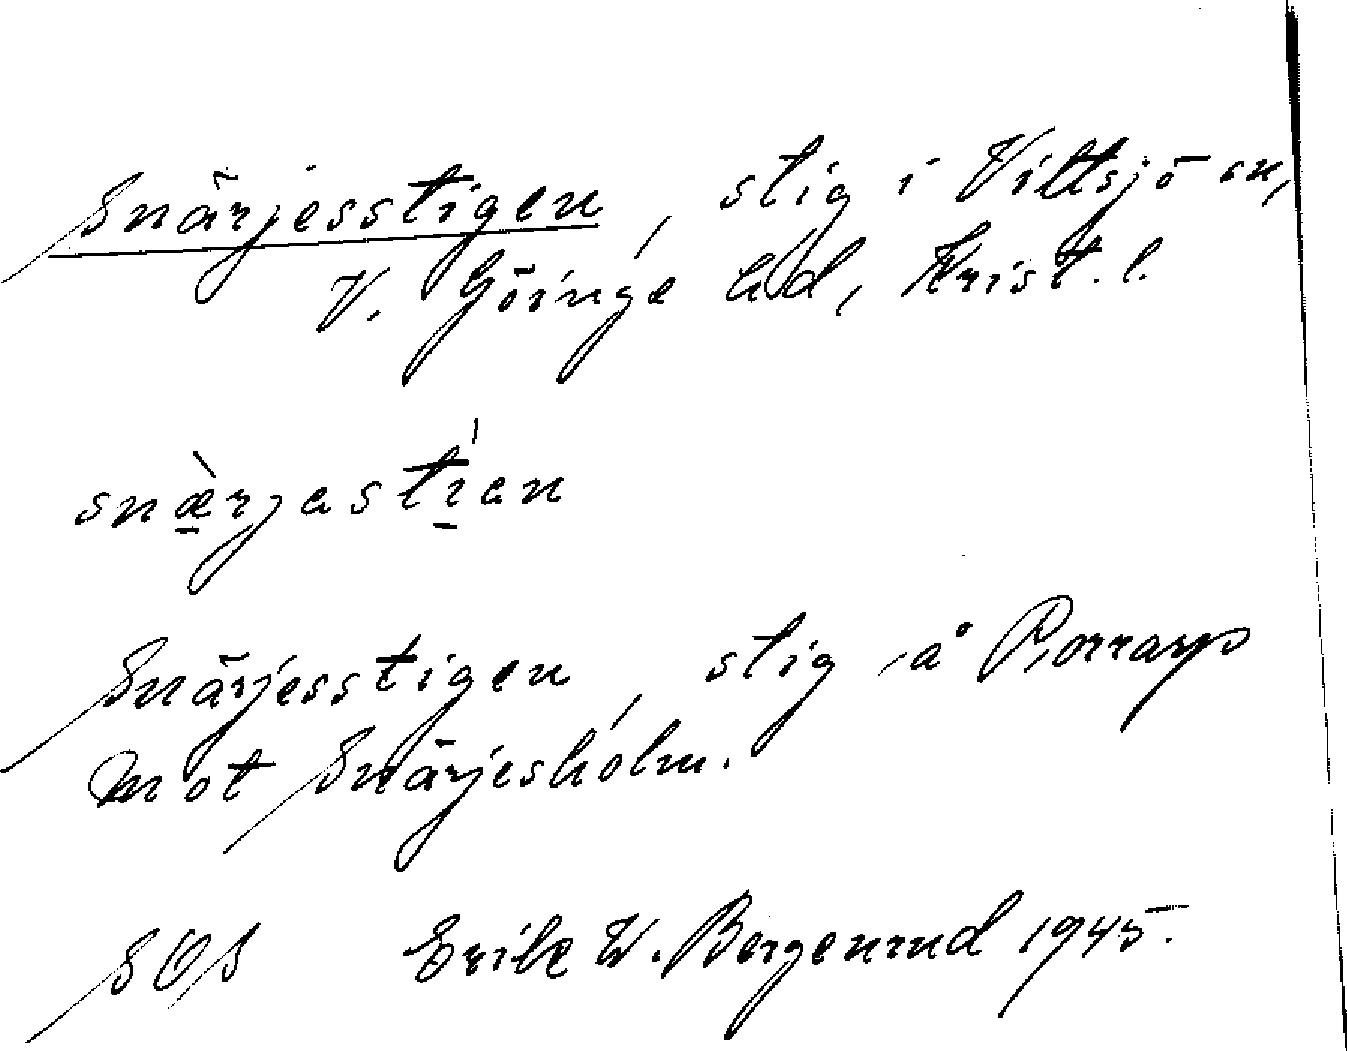 Snärjesstigen, stig i Vittsjö sn,
V. Göinge hd, Krist. l.
snæ̀rjastían
Snärjesstigen, stig å Porrarp
mot Snärjesholm.
SOS Erik W. Bergenrud 1945.